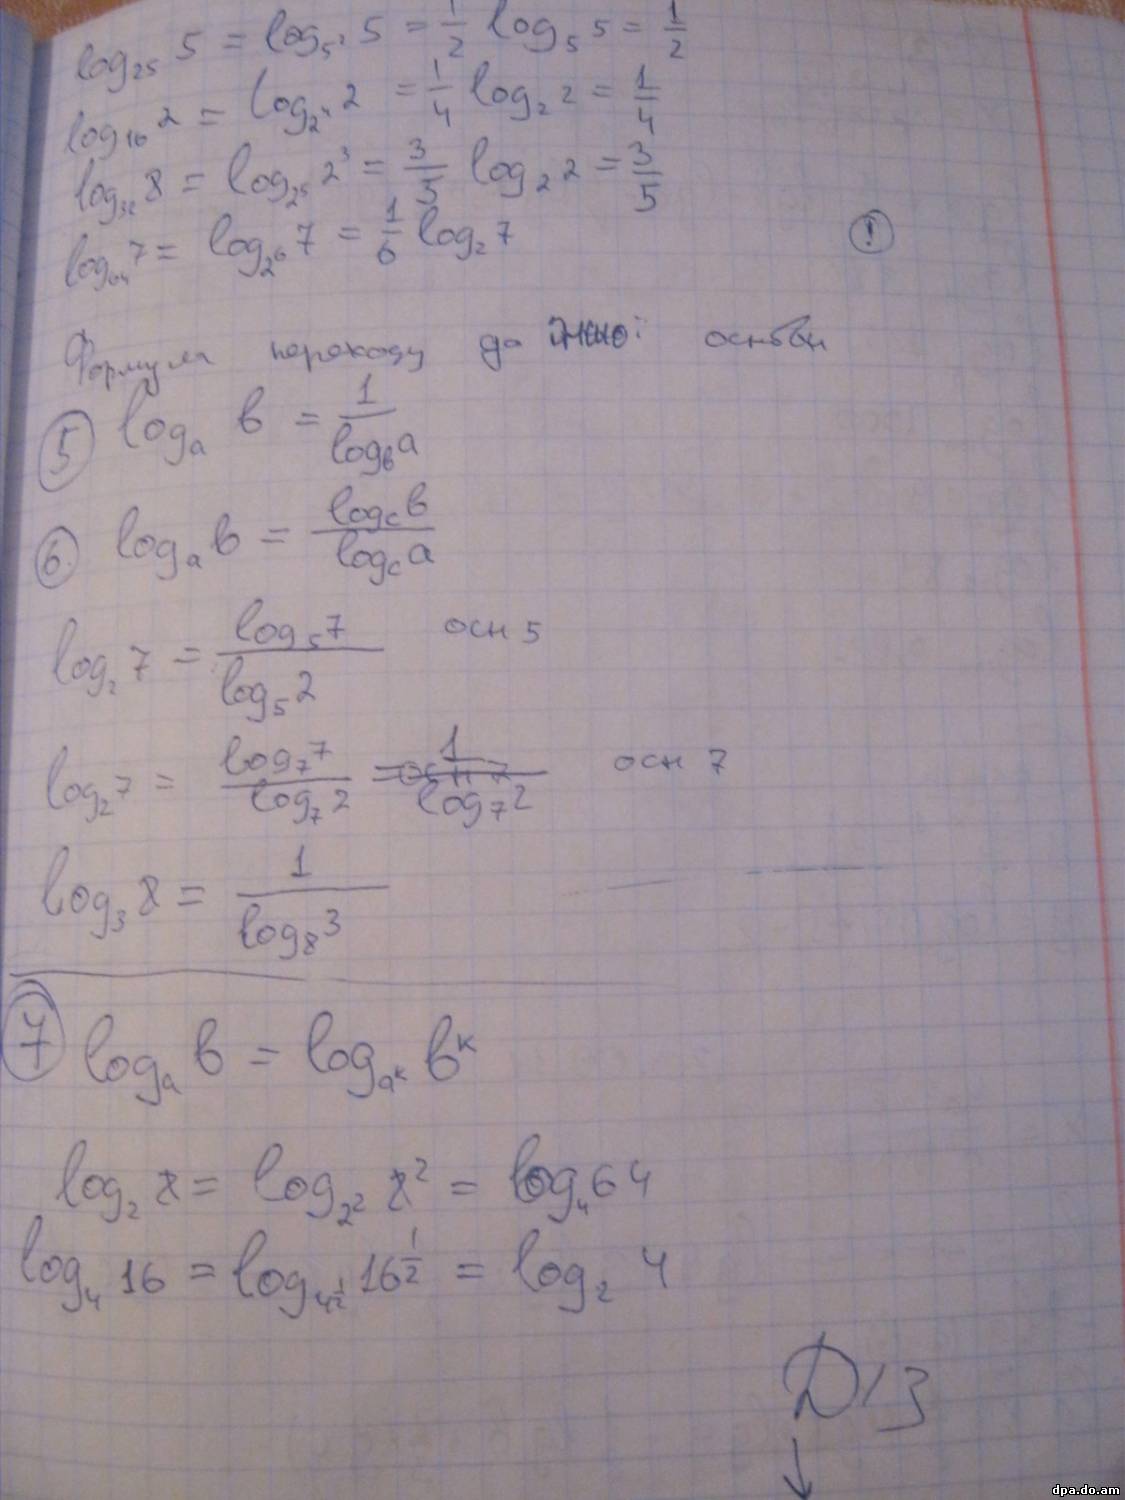 log₂₅ 5 = log₅² 5 = 1/2 log₅ 5 = 1/2
log₁₆ 2 = log₂⁴ 2 = 1/4 log₂ 2 = 1/4
log₃₂ 8 = log₂⁵ 2³ = 3/5 log₂ 2 = 3/5
log₆₄ 7 = log₂⁶ 7 = 1/6 log₂ 7
!
Формула переходу до іншої основи
5 logₐ в = 1/log_в a
6. logₐ в = log_c в/log_c a
log₂ 7 = log₅ 7/log₅ 2 осн 5
log₂ 7 = log₇ 7/log₇ 2 = 1/log₇ 2 осн 7
log₃ 8 = 1/log₈ 3
7 logₐ в = log_aᵏ вᵏ
log₂ 8 = log₂² 8² = log₄ 64
log₄ 16 = log_4^(1/2) 16^(1/2) = log₂ 4
Д/З
dpa.do.am